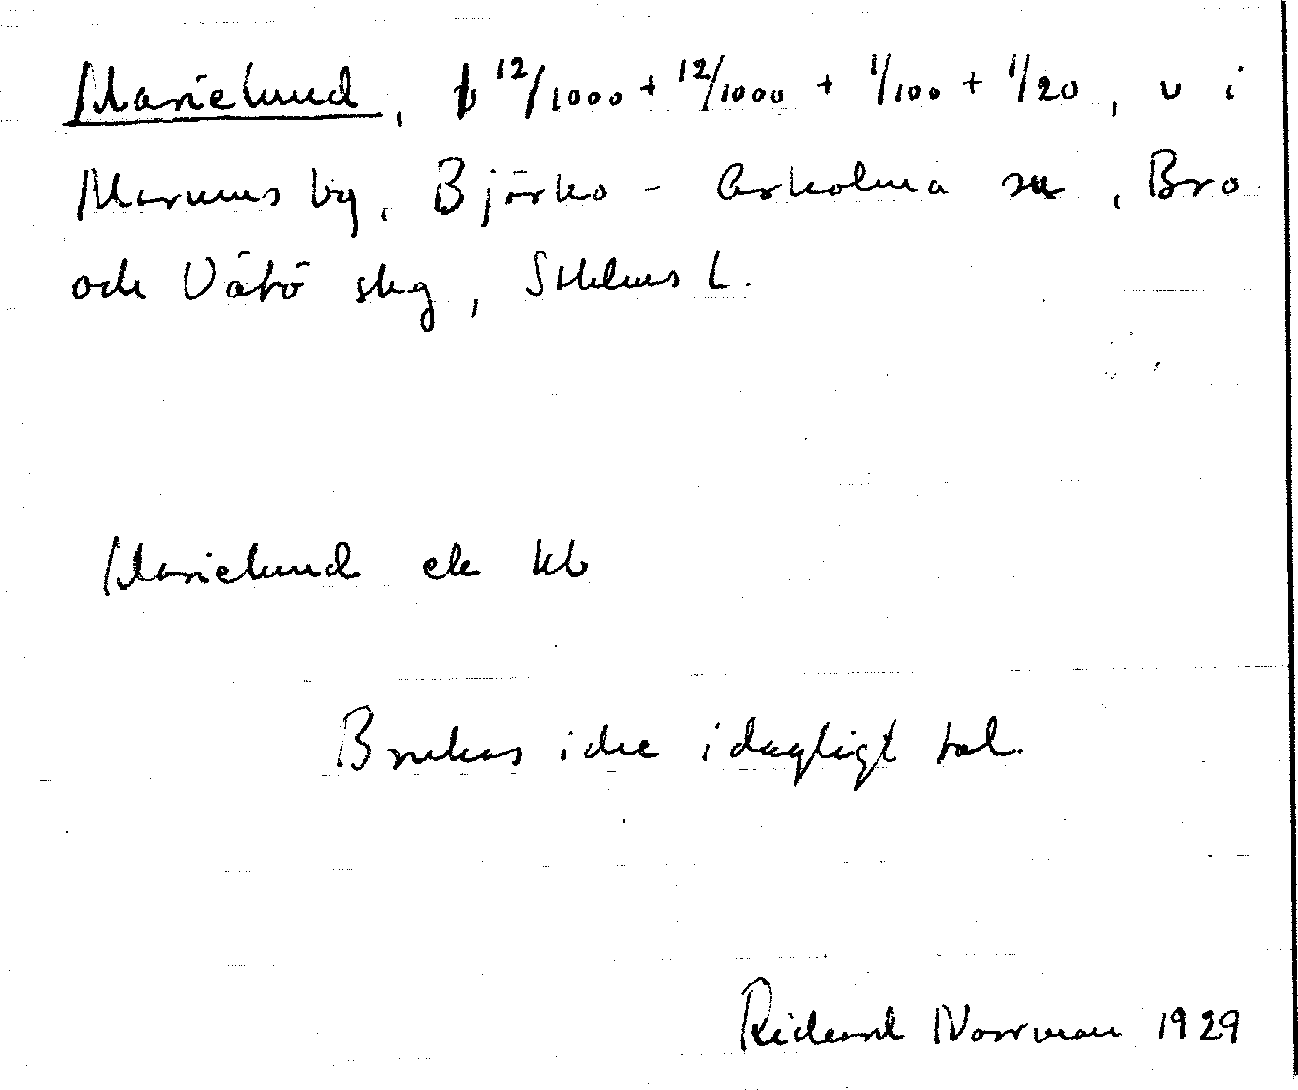 Marielund, b 12/1000 + 12/1000 + 1/100 + 1/20, v i
Marums by, Björkö - Arholma sn, Bro
och Vätö skg, Sthlms l.
Marielund ek kb
Brukas icke i dagligt tal.
Rickard Norrman 1929